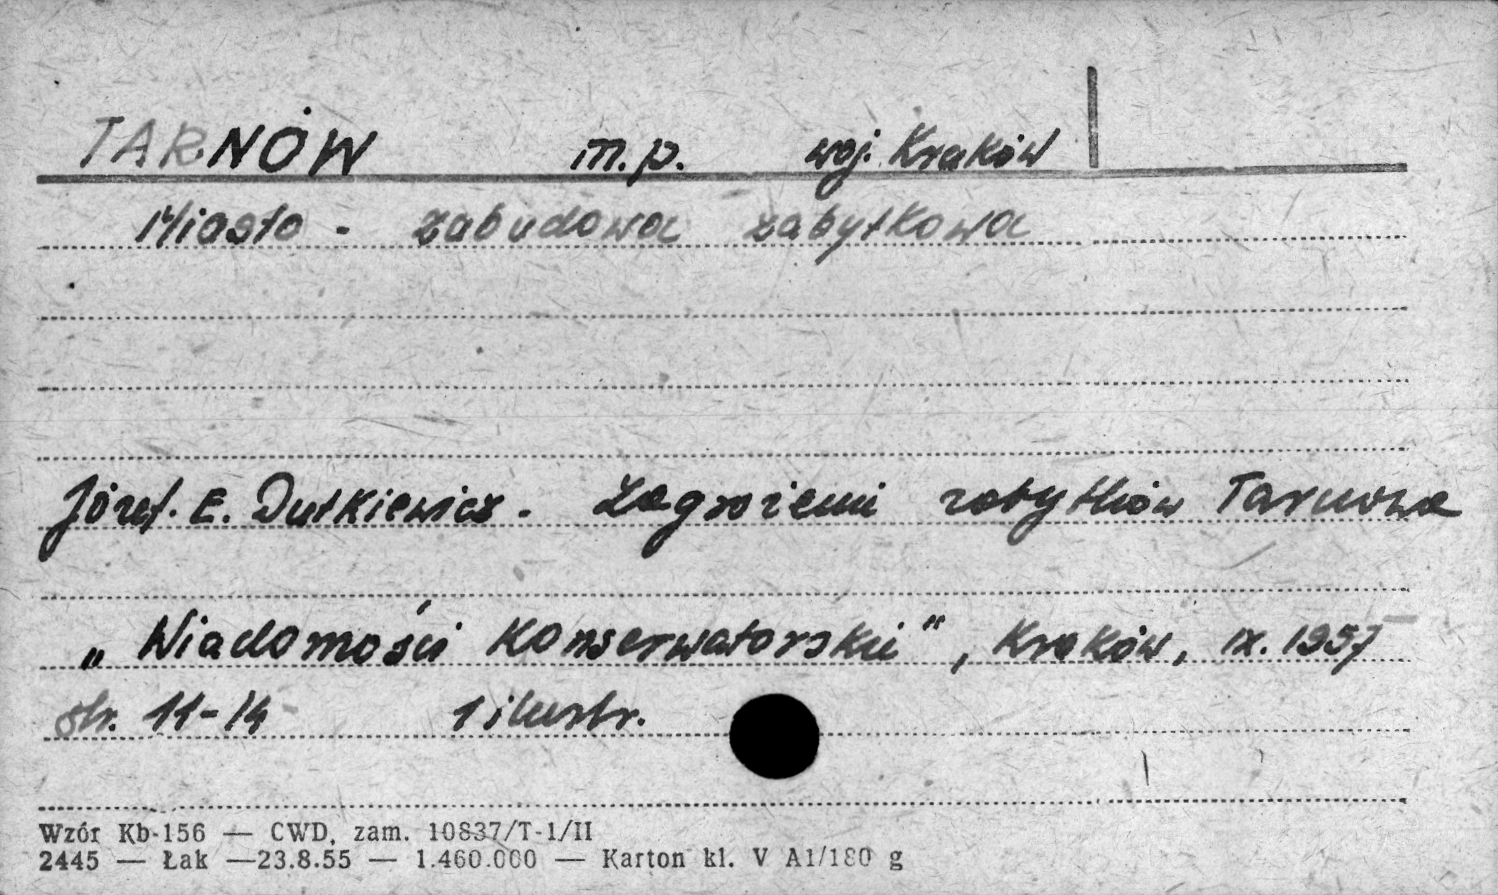 TARNÓW m.p. woj. Kraków
Miasto - zabudowa zabytkowa
Józef. E. Dutkiewicz. Zagrożenie zabytków Tarnowa
„Wiadomości Konserwatorskie", Kraków, IX. 1957
str. 11-14 1 ilustr.
Wzór Kb-156 — CWD, zam. 10837/T-1/II
2445 — Łak —23.8.55 — 1.460.000 — Karton kl. V A1/180 g